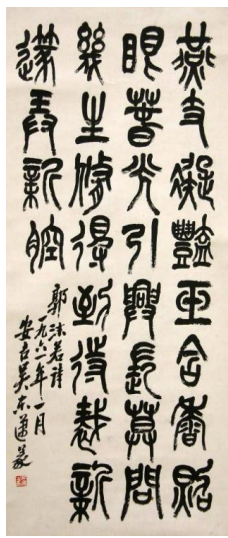 燕支凝豔玉含香照
眼春光引興長莫問
幾生修得到待裁新
新腔
郭沫若詩
一九六一年一月
安吉吳東邁篆